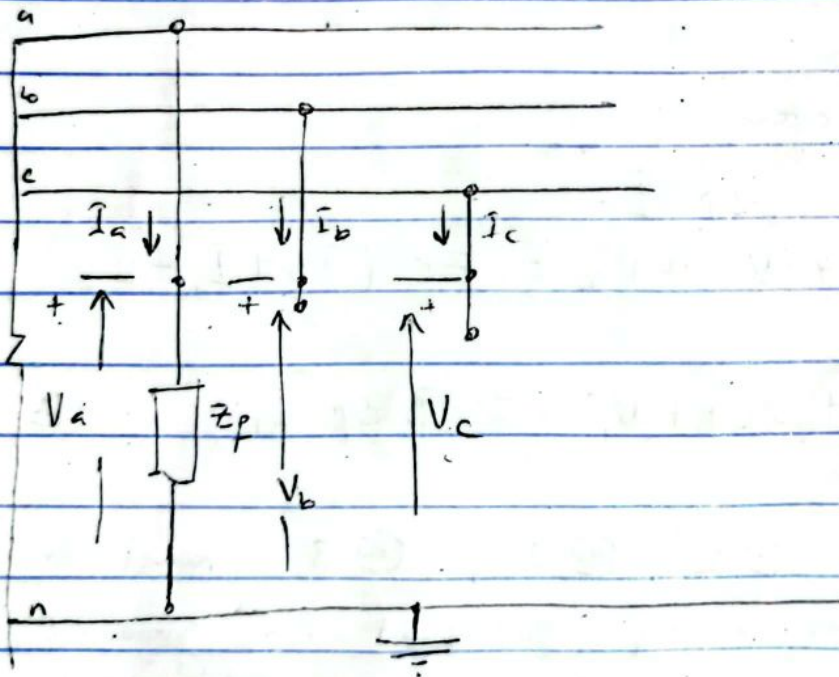 a
b
c
Ia Ib Ic
+ + +
Va Zf Vb Vc
n